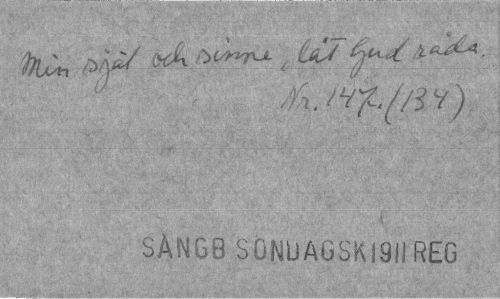 Min själ och sinne, låt Gud råda.
Nr. 147. (134)
SÅNGB SÖNDAGSK 1911 REG